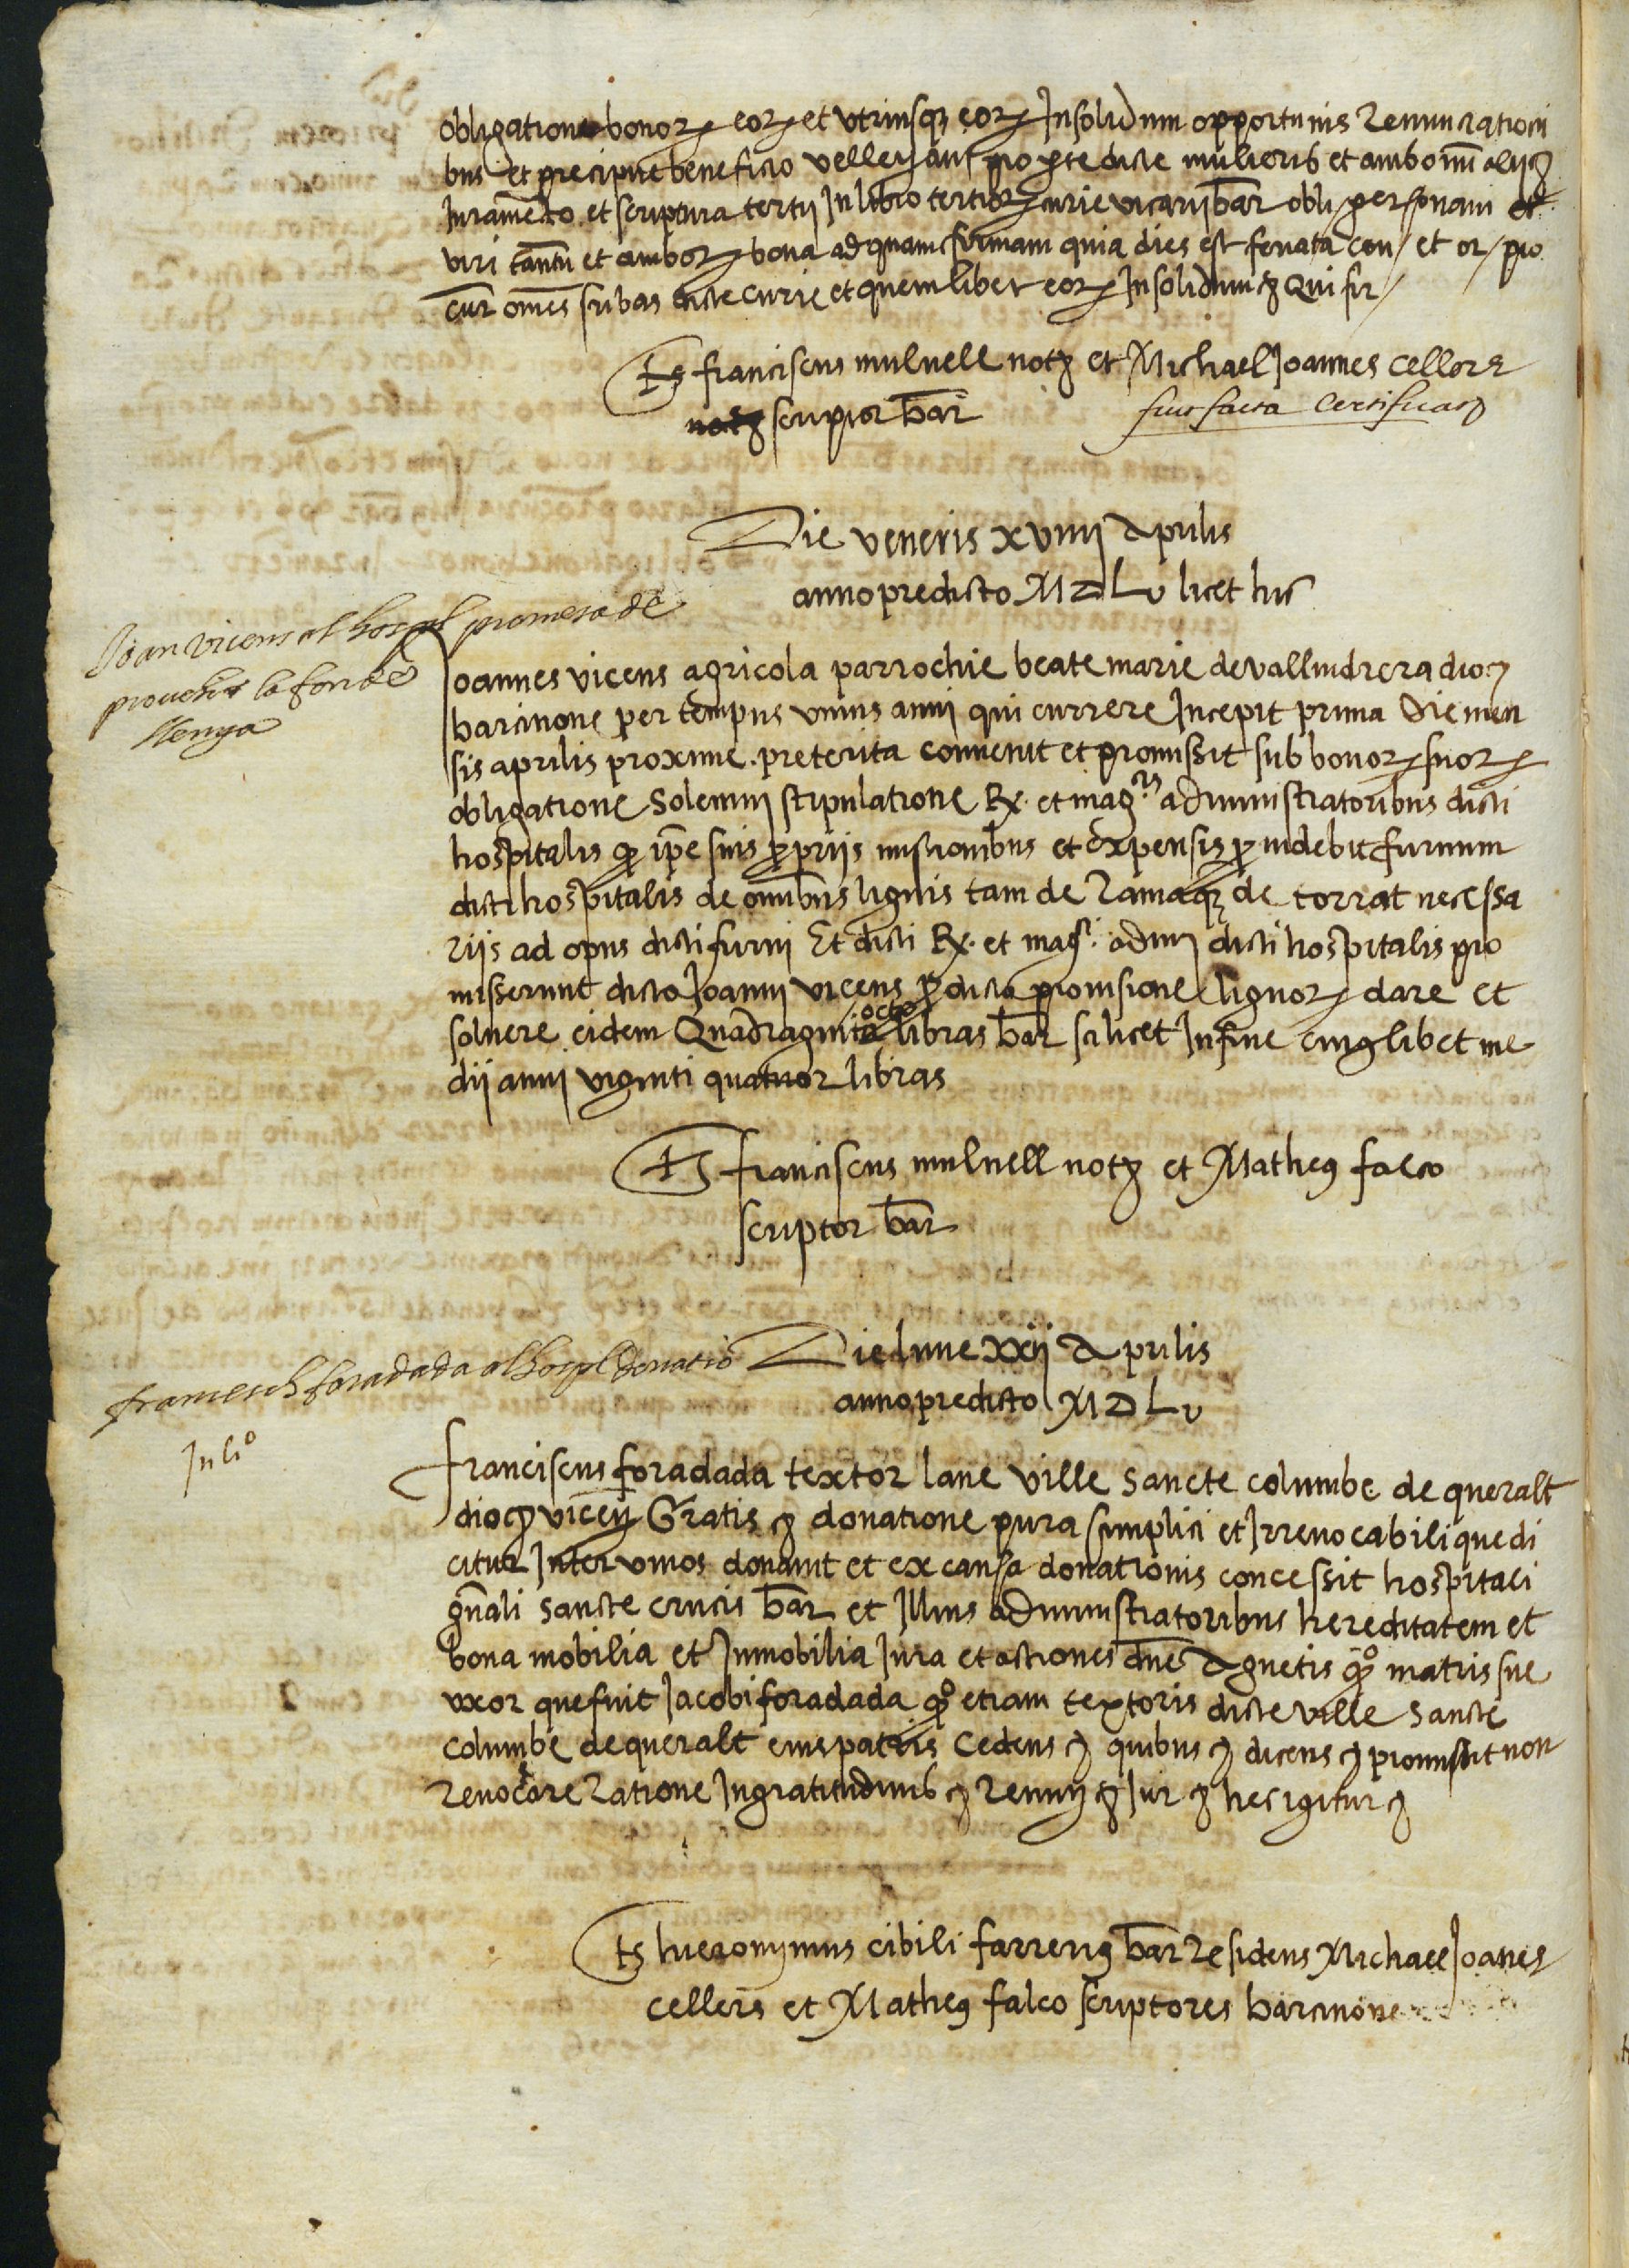 obligatione bonorum eorum et utriusque eorum Insolidum opportunis Renunciationi
bus et precipue beneficio velley
Juramento et scriptura tertii In libro tertiorum curie vicarii bar obli personam et
viri tantum et amborum bona ad quam firmam quia dies est feriata con et or pro
cur omnes scribas dicte curie et quemlibet eorum Insolidum etc Qui fir
Ts franciscus mulnell not et Michael Joannes cellers
scriptor bar
fuit facta Certificat
Die veneris xviiii Aprilis
anno predicto MDLv licet hic
Joan vicens al hospl promesa de
provehir lo forn de
llenya
Joannes vicens agricola parrochie beate marie de vallvidrera dioc
barcinone per tempus unius anni qui currere Incepit prima die men
sis aprilis proxime preterita convenit et promissit sub bonorum suorum
obligatione solemni stipulatione Rx. et mag.cis administratoribus dicti
hospitalis quod ipe suis propriis missionibus et expensis providebit furnum
dicti hospitalis de omnibus lignis tam de Rama quam de torrat necessa
riis ad opus dicti furni Et dicti Rx. et mag.ci admi dicti hospitalis pro
misserunt dicto Joanni vicens pro dicta provisione lignorum dare et
solvere eidem Quadraginta octo libras bar scilicet In fine cuiuslibet me
dii anni viginti quatuor libras
Ts franciscus mulnell not et Matheus falco
scriptor bar
Die lune xxii Aprilis
anno predicto MDLv
francesch foradada al hospl donatio
In li°
franciscus foradada textor lane ville sancte columbe de queralt
dioc vicen Gratis etc donatione pura simplici et Irrevocabili que di
citur Inter vivos donavit et ex causa donationis concessit hospitali
gnali sancte crucis bar et Illius administratoribus hereditatem et
bona mobilia et Inmobilia Jura et actiones dne Agnetis quo matris sue
uxor que fuit Jacobi foradada quo etiam textoris dicte ville sancte
columbe de queralt eius patris Cedens etc quibus etc dicens etc promissit non
revocare Ratione Ingratitudinis etc Renun etc Jur etc hec igitur etc
Ts hieronymus cibili farrerius bar Residens Michael Joanes
cellers et Matheus falco scriptores barcinone